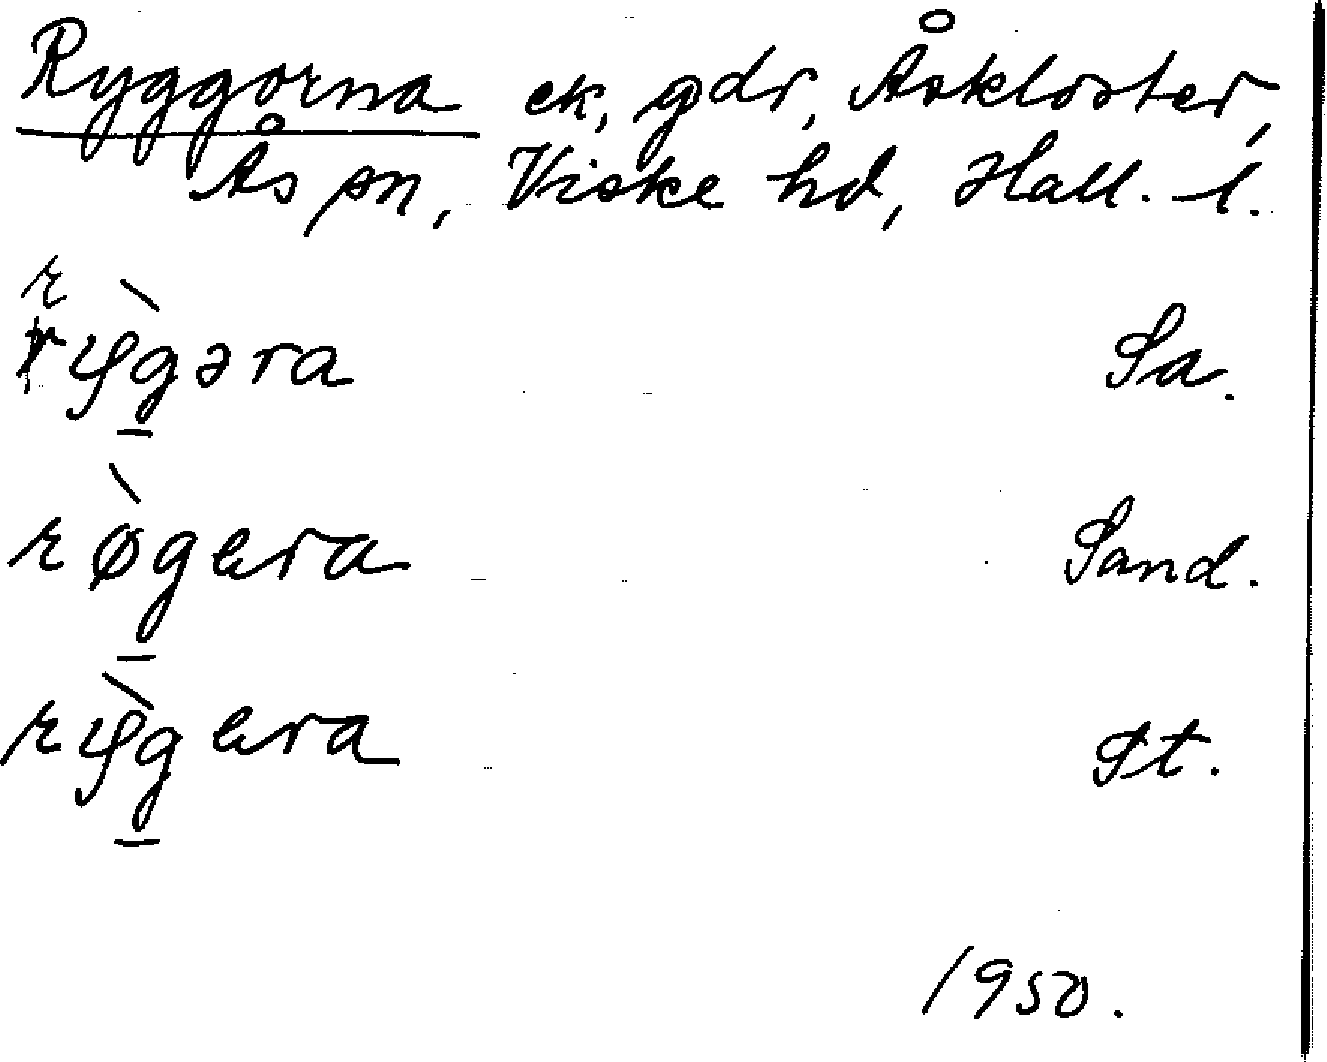 Ryggorna ek, gdr, Åskloster,
Ås sn, Viske hd, Hall. l.
r
rỳg̠əra Sa.
rø̀g̠ɐra Sand.
rỳg̠ɐra St.
1950.